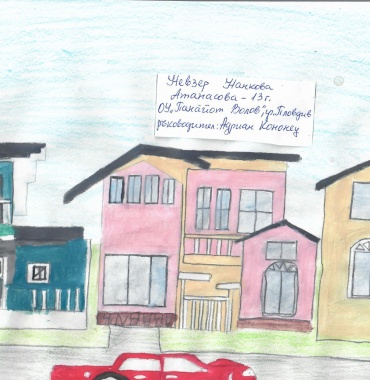 Невзер Нанкова
Атанасова - 13 г.
ОУ "Панайот Волов", гр. Пловдив
ръководител: Адриан Кононец